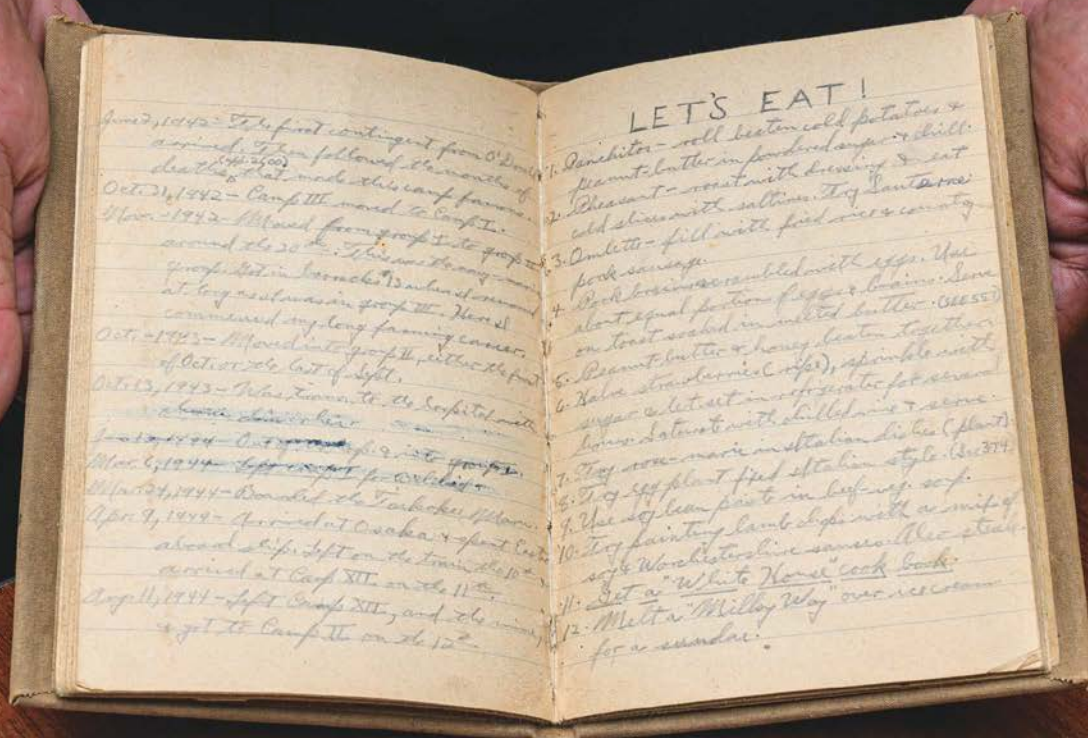 June 2, 1942 - The first contingent from O'Donnell
arrived. Then followed the months of
deaths that made this camp famous.
Oct. 31, 1942 - Camp III moved to Camp I.
Nov. - 1942 - Moved from group I to group III
around the 20th. This was the navy-marine
group. Got in barracks 13 and
as long as I was in group III. Here I
commenced my long farming career.
Oct. - 1943 - Moved into group II, either the first
of Oct. or the last of Sept.
Oct. 13, 1943 - Was to the hospital with
1944 - group
Mar. 6, 1944 - Left for
Mar. 24, 1944 - Boarded the Taikoku Maru.
Apr. 9, 1944 - Arrived at Osaka & spent Easter
aboard ship. Left on the train the 10th &
arrived at Camp XII on the 11th.
Aug. 11, 1944 - Left Camp XII, and the mine,
& got to Camp II on the 12th
LET'S EAT!
1. Panchitos - roll beaten cold potatoes &
peanut-butter in powdered sugar & chill.
2. Pheasant - roast with dressing & eat
cold slices with saltines. Try Sauterne
3. Omlette - fill with fried rice & country
pork sausage.
4. Pork brains scrambled with eggs. Use
about equal portions of eggs & brains. Serve
on toast soaked in melted butter. (SEE 55)
5. Peanut-butter & honey beaten together
6. Halve strawberries (ripe), sprinkle with
sugar & let set in refrigerator for several
hours. Saturate with chilled wine & serve.
7. Try rose-marie in Italian dishes (plant).
8. Try egg plant fixed Italian style. (See 374)
9. Use soy bean paste in beef-veg. soup.
10. Try painting lamb chops with a mix of
soy & Worchestershire sauces. Also steak.
11. Get a "White House" cook book.
12. Melt a "Milky Way" over ice cream
for a sundae.